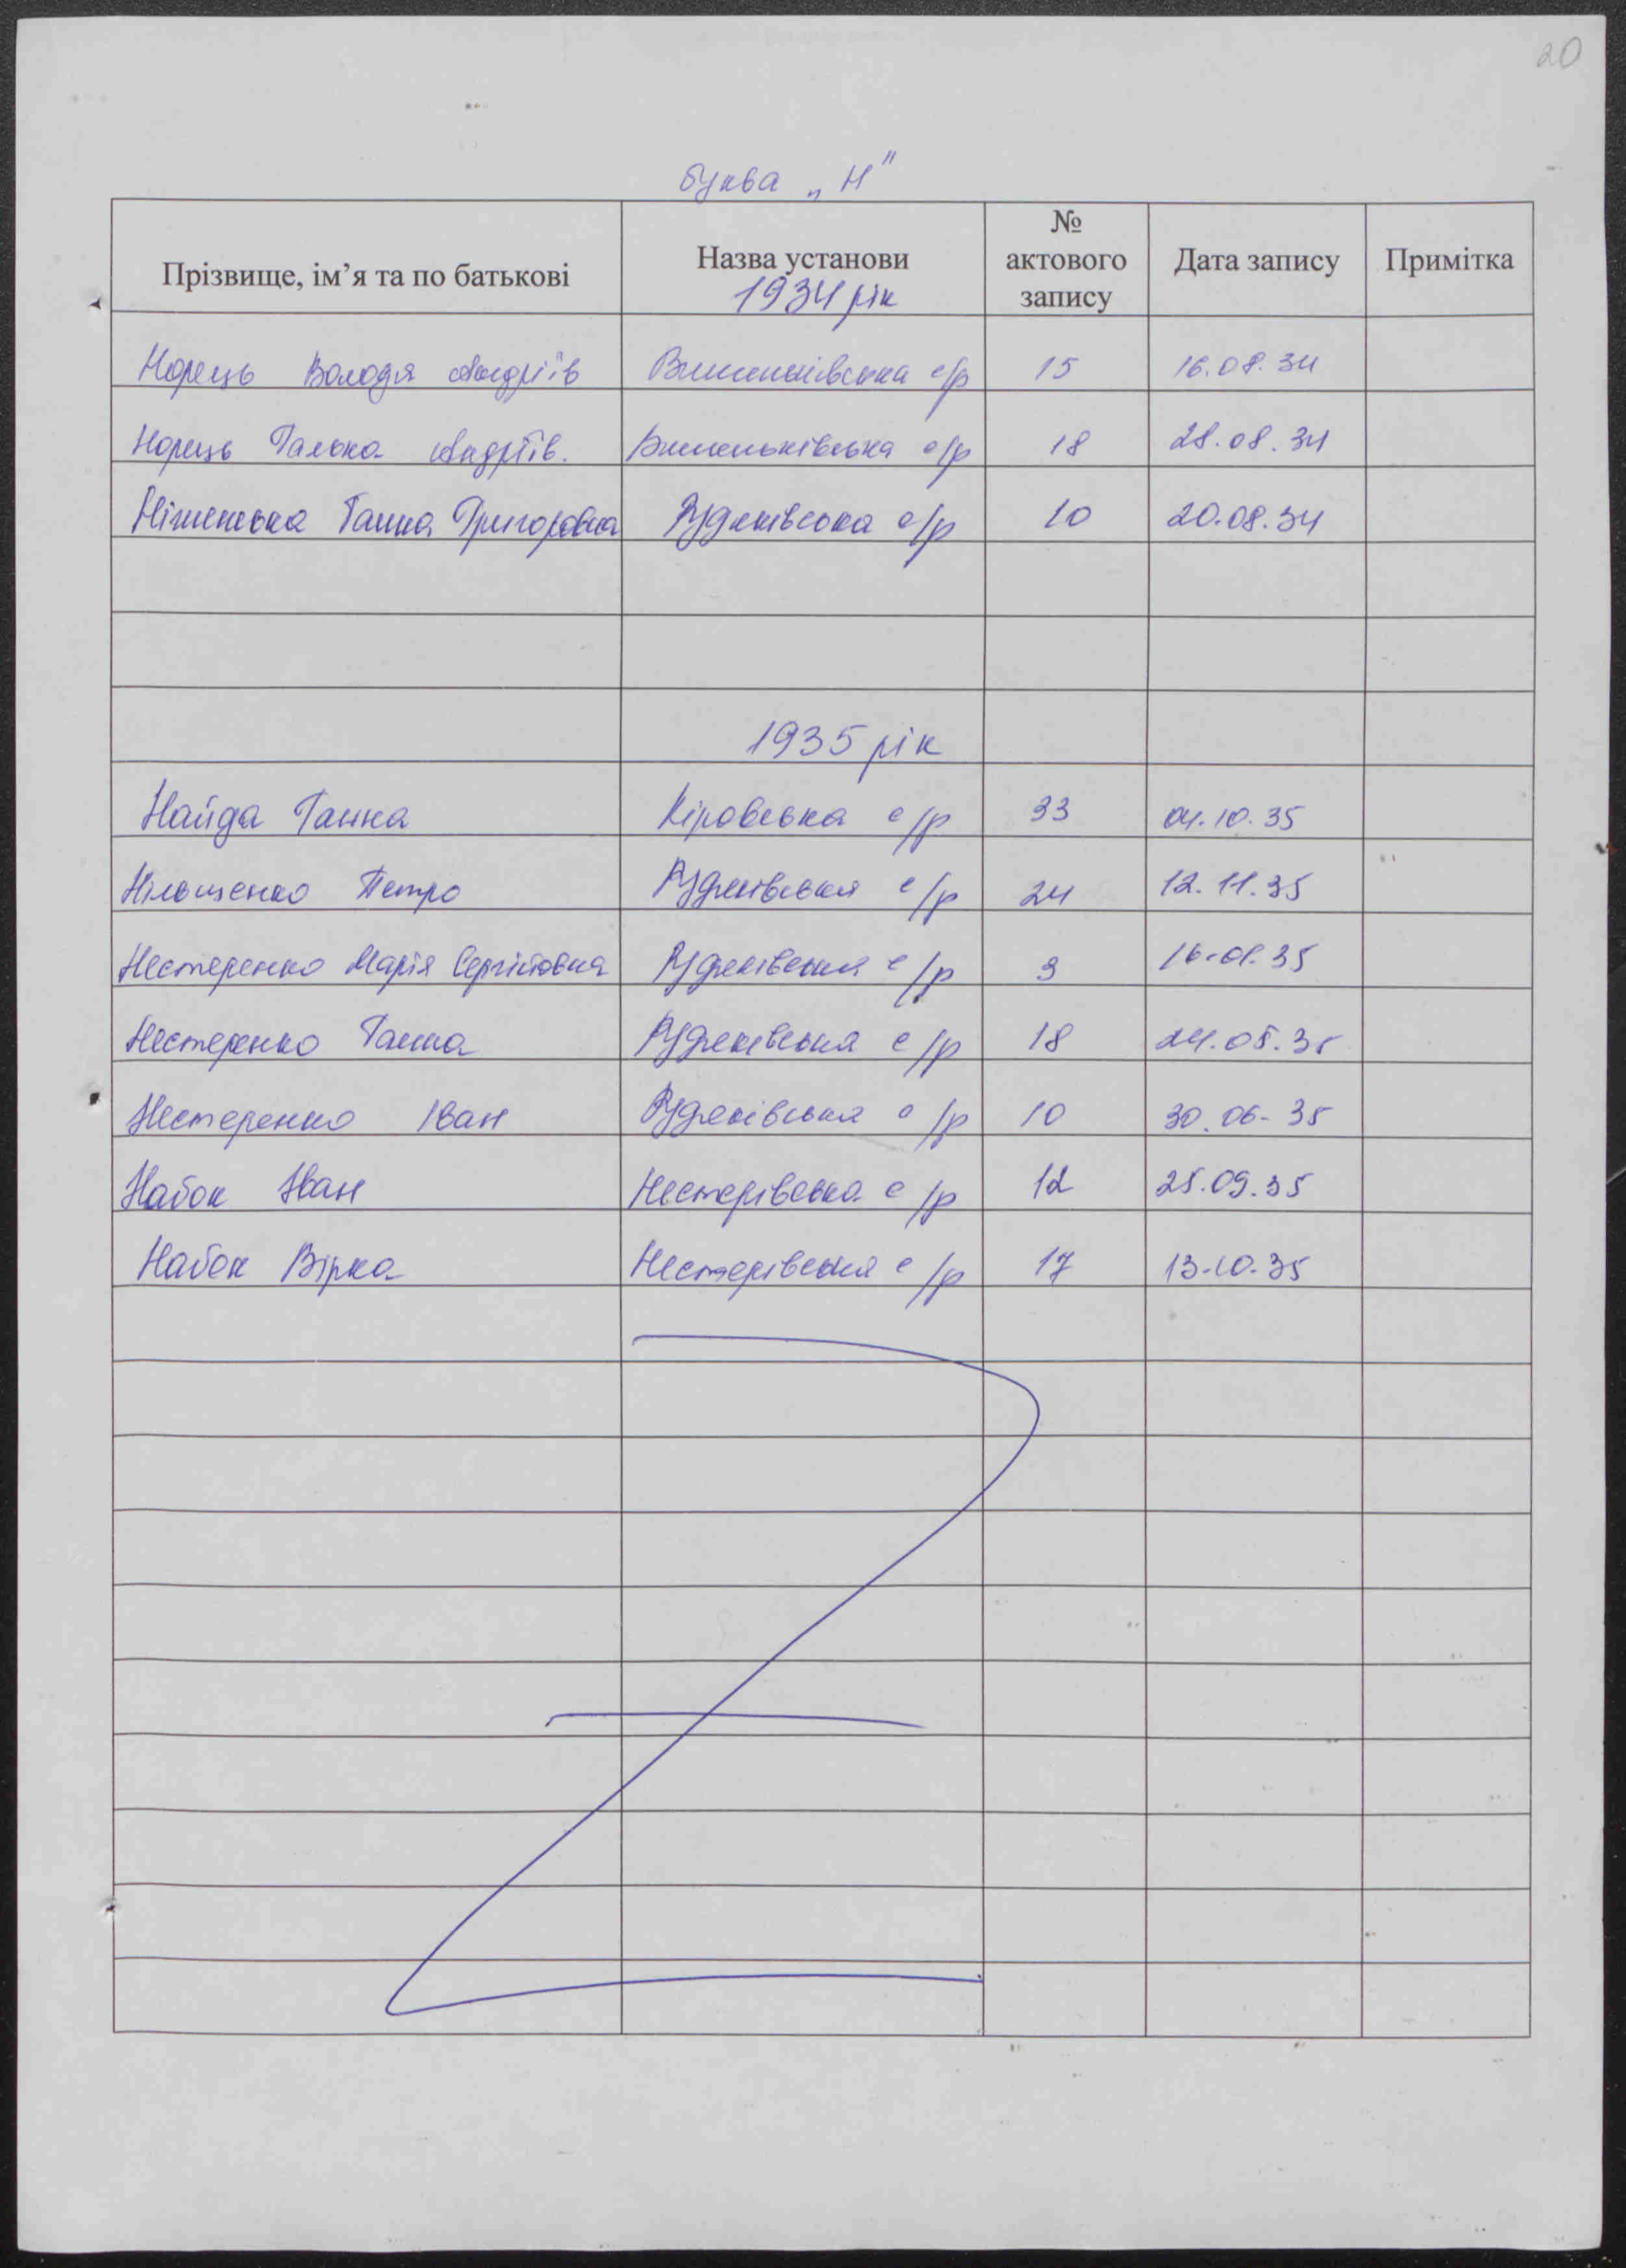 20
буква „Н"
Прізвище, ім’я та по батькові Назва установи 1934 рік № актового запису Дата запису Примітка
Норець Володя Андріїв Вишеньківська с/р 15 16.08.34
Норець Галька Андріїв. Вишеньківська с/р 18 28.08.34
Ніженська Ганна Григоровна Рудяківська с/р 10 20.08.34
1935 рік
Найда Ганна Кіровська с/р 33 04.10.35
Нільщенко Петро Рудяківська с/р 24 12.11.35
Нестеренко Марія Сергіївовна Рудяківська с/р 3 16.01.35
Нестеренко Ганна Рудяківська с/р 18 24.08.35
Нестеренко Іван Рудяківська с/р 10 30.06-35
Набок Іван Нестерівська с/р 12 25.09.35
Набок Вірка Нестерівська с/р 17 13.10.35